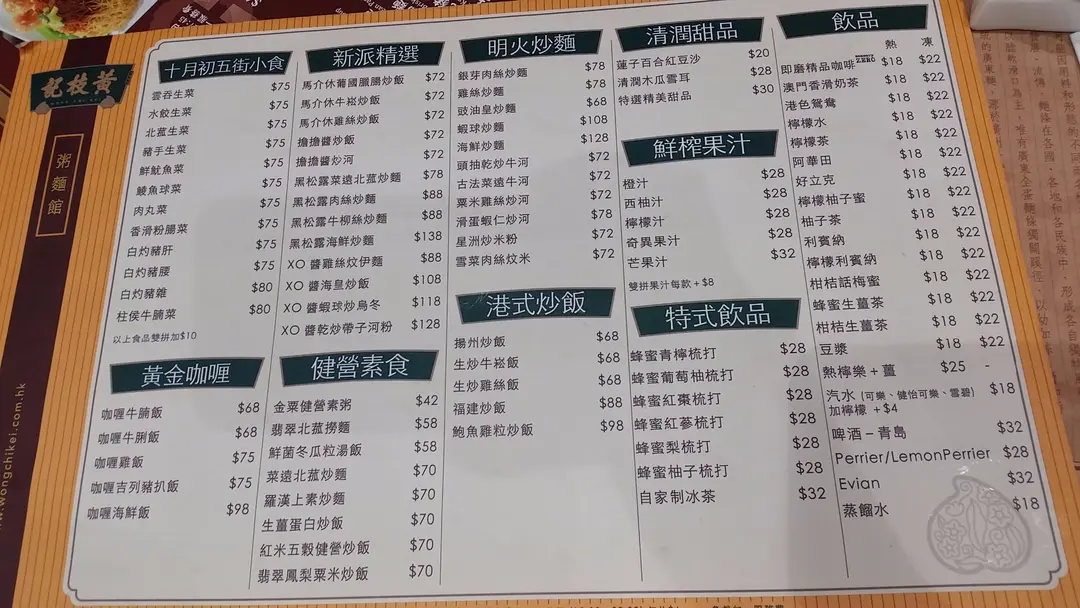 黃枝記
粥麵館
www.wongchikei.com.hk
十月初五街小食
雲吞生菜 $75
水餃生菜 $75
北菰生菜 $75
豬手生菜 $75
鮮魷魚菜 $75
鯪魚球菜 $75
肉丸菜 $75
香滑粉腸菜 $75
白灼豬肝 $75
白灼豬腰 $75
白灼豬雜 $80
柱侯牛腩菜 $80
以上食品雙拼加$10
黃金咖喱
咖喱牛腩飯 $68
咖喱牛脷飯 $68
咖喱雞飯 $75
咖喱吉列豬扒飯 $75
咖喱海鮮飯 $98
新派精選
馬介休葡國臘腸炒飯 $72
馬介休牛崧炒飯 $72
馬介休雞絲炒飯 $72
擔擔醬炒飯 $72
擔擔醬炒河 $72
黑松露菜遠北菰炒麵 $78
黑松露肉絲炒麵 $88
黑松露牛柳絲炒麵 $88
黑松露海鮮炒麵 $138
XO 醬雞絲炆伊麵 $88
XO 醬海皇炒飯 $108
XO 醬蝦球炒烏冬 $118
XO 醬乾炒帶子河粉 $128
健營素食
金粟健營素粥 $42
翡翠北菰撈麵 $58
鮮菌冬瓜粒湯飯 $58
菜遠北菰炒麵 $70
羅漢上素炒麵 $70
生薑蛋白炒飯 $70
紅米五穀健營炒飯 $70
翡翠鳳梨粟米炒飯 $70
明火炒麵
銀芽肉絲炒麵 $78
雞絲炒麵 $78
豉油皇炒麵 $68
蝦球炒麵 $108
海鮮炒麵 $128
頭抽乾炒牛河 $72
古法菜遠牛河 $72
粟米雞絲炒河 $72
滑蛋蝦仁炒河 $78
星洲炒米粉 $72
雪菜肉絲炆米 $72
港式炒飯
揚州炒飯 $68
生炒牛崧飯 $68
生炒雞絲飯 $68
福建炒飯 $88
鮑魚雞粒炒飯 $98
清潤甜品
蓮子百合紅豆沙 $20
清潤木瓜雪耳 $28
特選精美甜品 $30
鮮榨果汁
橙汁 $28
西柚汁 $28
檸檬汁 $28
奇異果汁 $28
芒果汁 $32
雙拼果汁每款 + $8
特式飲品
蜂蜜青檸梳打 $28
蜂蜜葡萄柚梳打 $28
蜂蜜紅棗梳打 $28
蜂蜜紅蔘梳打 $28
蜂蜜梨梳打 $28
蜂蜜柚子梳打 $28
自家制冰茶 $32
飲品
熱 凍
即磨精品咖啡 $18 $22
澳門香滑奶茶 $18 $22
港色鴛鴦 $18 $22
檸檬水 $18 $22
檸檬茶 $18 $22
阿華田 $18 $22
好立克 $18 $22
檸檬柚子蜜 $18 $22
柚子茶 $18 $22
利賓納 $18 $22
檸檬利賓納 $18 $22
柑桔話梅蜜 $18 $22
蜂蜜生薑茶 $18 $22
柑桔生薑茶 $18 $22
豆漿 $18 $22
熱檸樂 + 薑 $25 -
汽水 (可樂、健怡可樂、雪碧) $18
加檸檬 + $4
啤酒 – 青島 $32
Perrier/LemonPerrier $28
Evian $32
蒸餾水 $18